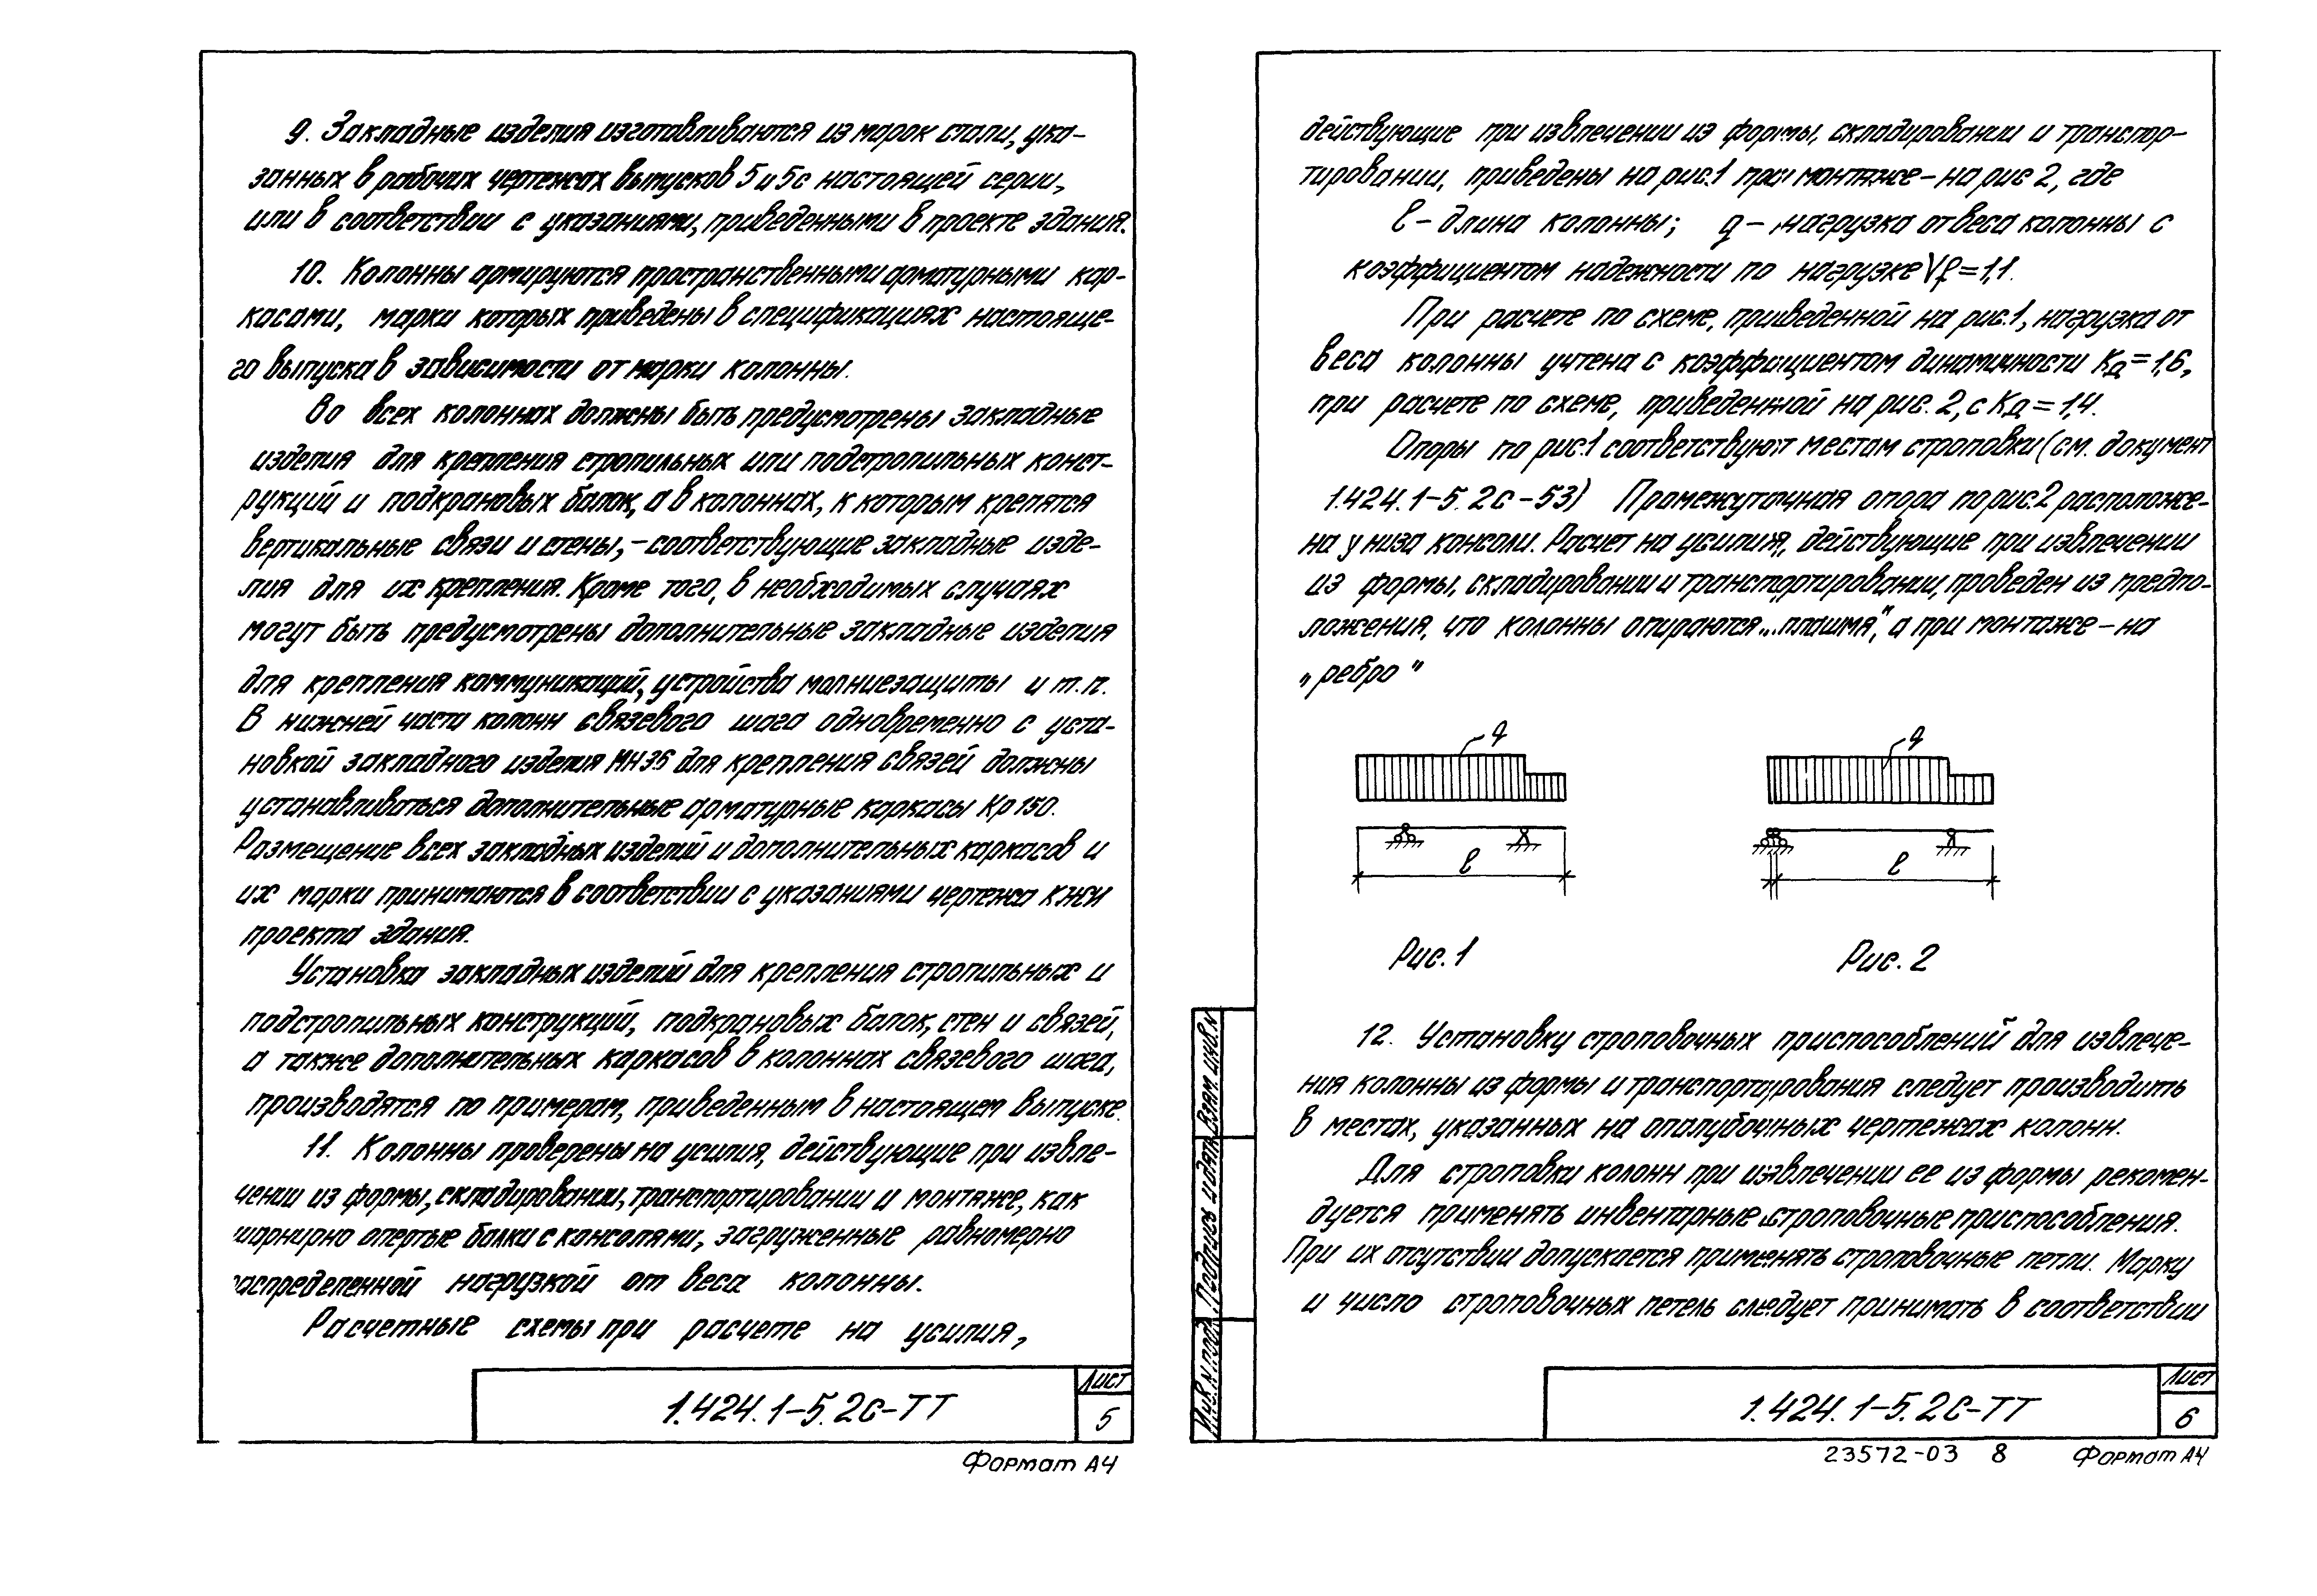 9. Закладные изделия изготавливаются из марок стали, ука-
занных в рабочих чертежах выпусков 5 и 5с настоящей серии,
или в соответствии с указаниями, приведенными в проекте здания.
10. Колонны армируются пространственными арматурными кар-
касами, марки которых приведены в спецификациях настояще-
го выпуска в зависимости от марки колонны.
Во всех колоннах должны быть предусмотрены закладные
изделия для крепления стропильных или подстропильных конст-
рукций и подкрановых балок, а в колоннах, к которым крепятся
вертикальные связи и стены, – соответствующие закладные изде-
лия для их крепления. Кроме того, в необходимых случаях
могут быть предусмотрены дополнительные закладные изделия
для крепления коммуникаций, устройства молниезащиты и т.п.
В нижней части колонн связевого шага одновременно с уста-
новкой закладного изделия МН36 для крепления связей должны
устанавливаться дополнительные арматурные каркасы Кр150.
Размещение всех закладных изделий и дополнительных каркасов и
их марки принимаются в соответствии с указаниями чертежа КЖИ
проекта здания.
Установка закладных изделий для крепления стропильных и
подстропильных конструкций, подкрановых балок, стен и связей,
а также дополнительных каркасов в колоннах связевого шага,
производятся по примерам, приведенным в настоящем выпуске.
11. Колонны проверены на усилия, действующие при извле-
чении из формы, складировании, транспортировании и монтаже, как
шарнирно опертые балки с консолями, загруженные равномерно
распределенной нагрузкой от веса колонны.
Расчетные схемы при расчете на усилия,
1.424.1-5.2С-ТТ
Лист
5
Формат А4
действующие при извлечении из формы, складировании и транспор-
тировании, приведены на рис.1 при монтаже – на рис 2, где
ℓ – длина колонны; q – нагрузка от веса колонны с
коэффициентом надежности по нагрузке γf = 1,1.
При расчете по схеме, приведенной на рис.1, нагрузка от
веса колонны учтена с коэффициентом динамичности Kд = 1,6,
при расчете по схеме, приведенной на рис. 2, с Kд = 1,4.
Опоры по рис.1 соответствуют местам строповки (см. документ
1.424.1-5.2С-53) Промежуточная опора по рис.2 расположе-
на у низа консоли. Расчет на усилия, действующие при извлечении
из формы, складировании и транспортировании, проведен из предпо-
ложения, что колонны опираются „плашмя", а при монтаже – на
„ребро"
q
q
ℓ
ℓ
Рис. 1
Рис. 2
12. Установку строповочных приспособлений для извлече-
ния колонны из формы и транспортирования следует производить
в местах, указанных на опалубочных чертежах колонн.
Для строповки колонн при извлечении ее из формы рекомен-
дуется применять инвентарные строповочные приспособления.
При их отсутствии допускается применять строповочные петли. Марку
и число строповочных петель следует принимать в соответствии
Взам. инв. N
Подпись и дата
Инв. N подл.
1.424.1-5.2С-ТТ
Лист
6
23572-03 8
Формат А4